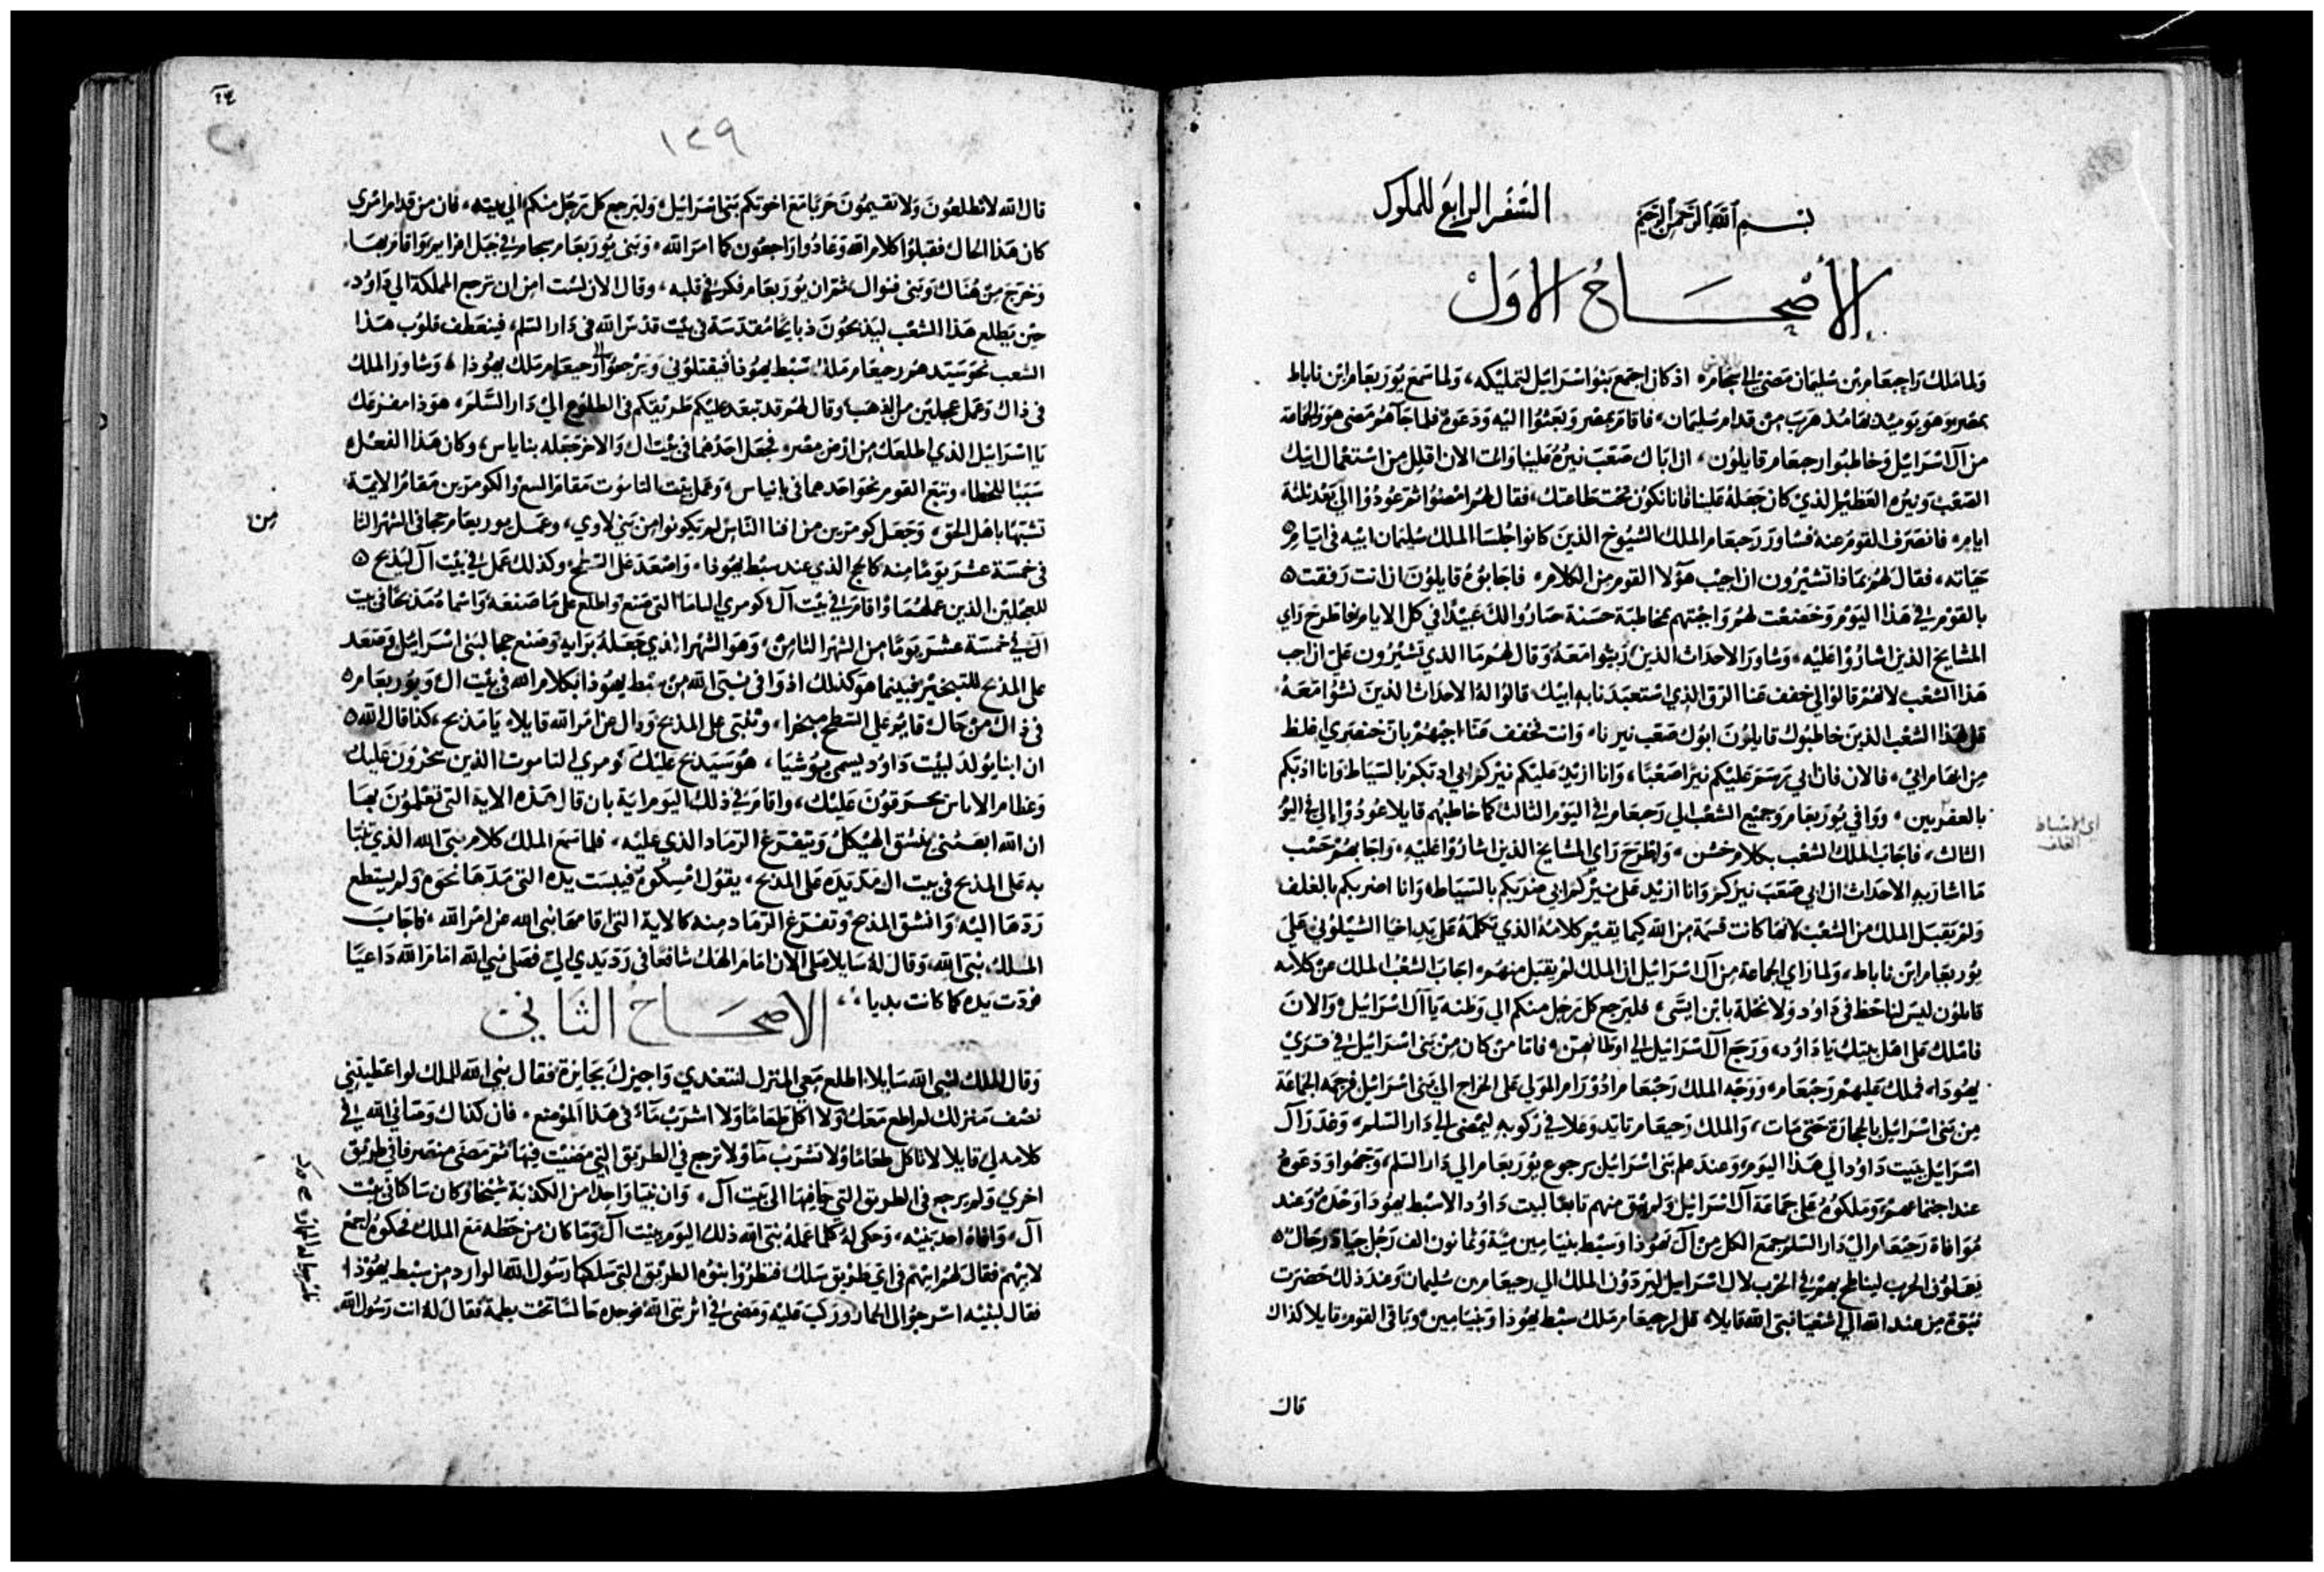 بسم الله الرحمن الرحيم السفر الرابع للملوك
الأصحاح الاول
ولما ملك راجعام بن سليمان مضى الي سجام اذ كان اجمع بنو اسرائيل لتمليكه، ولما سمع يوربعام ابن ناباط
بمصر وهو يوميذ بها مذ هرب من قدام سليمان، فاقام بمصر وبعثوا اليه ودعوه فلما جآهم مضى هو والجماعة
من آل اسرائيل وخاطبوا رحبعام قايلون، ان اباك صعب نيره علينا وانت الان اقلل من استعمال ابيك
الصعب ونيره العظيم الذي كان جعله علينا فاننا نكون تحت طاعتك، فقال لهم امضوا ثم عودوا الي بعد ثلثة
ايام، فانصرف القوم عنه فشاور رحبعام الملك الشيوخ الذين كانوا جلسا الملك سليمان ابيه في ايام
حياته، فقال لهم بماذا تشيرون ان اجيب هولا القوم من الكلام، فاجابوه قايلون ان انت رفقت
بالقوم في هذا اليوم وخضعت لهم واجبتهم بمخاطبة حسنة صاروا لك عبيدا في كل الايام فاطرح راي
المشايخ الذين اشاروا عليه، وشاور الاحداث الذين ربيوا معه وقال لهم ما الذي تشيرون علي ان اجب
هذا الشعب لانهم قالوا لي خفف عنا الرق الذي استعبدنا به ابيك قالوا له الاحداث الذين نشوا معه
قل لهذا الشعب الذين خاطبوك قايلون ابوك صعب نيرنا، وانت تخفف عنا، اجبهم بان خنصري اغلظ
من ابهام ابي، فالان فان ابي رسم عليكم نيرا صعبا، وانا ازيد عليكم نيركم ابي ادبكم بالسياط وانا ادبكم
بالعقربين، ووافي يوربعام وجميع الشعب الي رحبعام في اليوم الثالث كما خاطبهم قايلا عودوا الي في اليوم
الثالث، فاجاب الملك الشعب بكلام خشن، واطرح راي المشايخ الذين اشاروا عليه، واجابهم حسب
ما اشار به الاحداث ان ابي صعب نيركم وانا ازيد على نيركم ابي ضربكم بالسياط، وانا اضربكم بالغلف
ولم يقبل الملك من الشعب لانها كانت قسمة من الله كيما يقيم كلامه الذي تكلمه على يد اخيا الشيلوني علي
يوربعام ابن ناباط، ولما راي الجماعة من آل اسرائيل ان الملك لم يقبل منهم، اجاب الشعب الملك عن كلامه
قايلون ليس لنا حظ في داود ولا نحلة بابن ايسى، فليرجع كل رجل منكم الي وطنه يا آل اسرائيل، والان
فاملك على اهل بيتك يا داود، ورجع آل اسرائيل الي اوطانهن، فاما من كان من بني اسرائيل في قري
يهودا، فملك عليهم رحبعام، ووجه الملك رحبعام ادورام المولي على الخراج الي بني اسرائيل فرجمه الجماعة
من بني اسرائيل بالحجارة حتى مات، والملك رحبعام تايد وعلا في ركوبه ليمضى الي دار السلم، وغدر آل
اسرائيل ببيت داود الي هذا اليوم، وعند علم بني اسرائيل برجوع يوربعام الي دار السلم، وجهوا ودعوه
عند اجتماعهم وملكوه على جماعة آل اسرائيل ولم يبق منهم تابعا لبيت داود الا سبط يهودا وحده وعند
موافاة رحبعام الي دار السلم جمع الكل من آل يهوذا وسبط بنيامين مية وثمانون الف رجل جياة رجال
يفعلون الحرب ليناطح بهم في الحرب لال اسرائيل ليردون الملك الي رحبعام بن سليمان وعند ذلك حضرت
نبوة من عند الله الي اشعيا نبي الله قايلا، قل لرحبعام ملك سبط يهودا وبنيامين، وباقي القوم قايلا كذاك
قال
اي بالسياط
الغلف
١٣٩
قال الله لا تطلعون ولا تقيمون حربا مع اخوتكم بني اسرائيل، وليرجع كل رجل منكم الي بيته، فان من قدام امري
كان هذا الحال فقبلوا كلام الله وعادوا راجعون كما امر الله، وبنى يوربعام سجام في جبل افرايم، واقام بها،
وخرج من هناك وبنى فنوال، ثم ان يوربعام فكر في قلبه، وقال الان لست امن ان ترجع المملكة الي داود،
حين يطلع هذا الشعب ليذبحون ذبايحا مقدسة في بيت قدس الله في دار السلم، فينعطف قلوب هذا
الشعب نحو سيدهم رحبعام ملك سبط يهوذا فيقتلوني ويرجعوا الي رحبعام ملك يهوذا، وشاور الملك
في ذاك وعمل عجلين من الذهب، وقال لهم قد تبعد عليكم طريقكم في الطلوع الي دار السلم، هوذا مفزعك
يا اسرائيل الذي اطلعك من ارض مصر، فجعل احدهما في بيت ال والاخر جعله بناياس، وكان هذا الفعل
سببا للخطا، وتبع القوم نحو احدهما في بانياس، وعمل بيت الناموت مقام السبع والكومرين مقام الايمة
تشبها باهل الحق، وجعل كومرين من افنا الناس لم يكونوا من بني لاوي، وعمل يوربعام حجا في الشهر الثا
من
في خمسة عشر يوما منه كالحج الذي عند سبط يهوذا، واصعد على السطح، وكذلك عمل في بيت آل ليذبح
للعجلين الذين عملهما واقام في بيت آل كومري الباماة التي صنع واطلع على ما صنعه واسماه مذبحا في بيت
ال في خمسة عشر يوما من الشهر الثامن، وهو الشهر الذي جعله برايه وصنع حجا لبني اسرائيل وصعد
على المذبح للتبخير فبينما هو كذلك اذ وافى نبي الله من سبط يهوذا بكلام الله في بيت ال ويوربعام
في ذاك من حال قايم علي السطح مبخرا، وتنبى على المذبح وقال عن امر الله قايلا، يا مذبح، كذا قال الله
ان ابنا يولد لبيت داود يسمى يوشيا، هو سيذبح عليك كومري الناموت الذين يبخرون عليك
وعظام الاناس يحرقون عليك، واقام في ذلك اليوم اية بان قال هذه الاية التي تعلمون بها
ان الله ابعثني ينشق الهيكل ويتفرغ الرماد الذي عليه، فلما سمع الملك كلام نبي الله الذي تنبا
به على المذبح في بيت ال مد يده على المذبح، يقول امسكوه فيبست يده التي مدها نحوه ولم يستطع
ردها اليه، وانشق المذبح وتفرغ الرماد منه كالاية التي اقامها نبي الله عن امر الله، فاجاب
الملك نبي الله، وقال له سايلا صلى الان امام الهك شافعا في رد يدي الي، فصلى نبي الله امام الله داعيا
فردت يده كما كانت بديا،
الاصحاح الثاني
وقال الملك لنبي الله سايلا اطلع معي المنزل لنتغدي واجيزك بجايزة، فقال نبي الله للملك لو اعطيتني
نصف منزلك لم اطلع معك ولا اكل طعاما ولا اشرب مآء في هذا الموضع، فان كذاك وصاني الله في
كلامه لي قايلا لا تاكل طعاما ولا تشرب مآ ولا ترجع في الطريق التي مضيت فيها، ثم مضى منصرفا في طريق
اخري ولم يرجع في الطريق التي جا فيها الي بيت آل، وان نبيا واحدا من الكذبة شيخا وكان ساكنا في بيت
آل، وافاه احد بنيه، وحكى له كلما عمله نبي الله ذلك اليوم ببيت آل وما كان من خطه مع الملك فحكوه اجمع
لابيهم، فقال لهم ابيهم في اي طريق سلك فنظروا بنوه الطريق التي سلكها رسول الله الوارد من سبط يهوذا
فقال لبنيه اسرجوا لي الحمار وركب عليه ومضى في اثر نبي الله فوجده جالسا تحت بطمة فقال له انت رسول الله